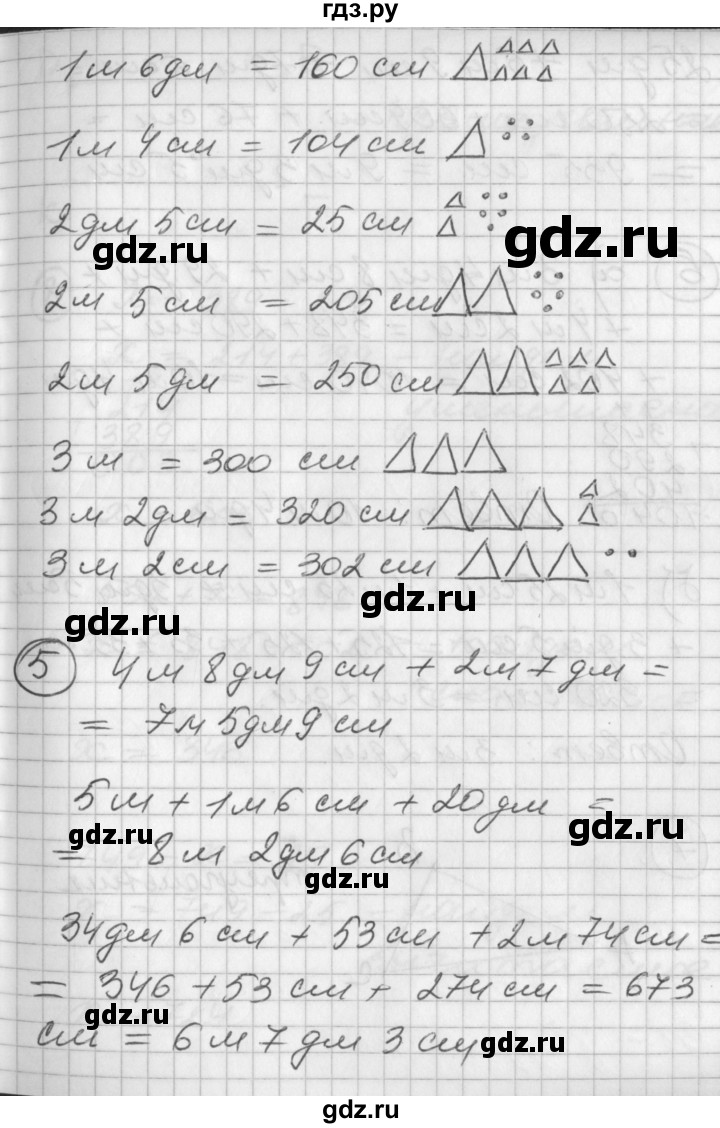 гдз.ру
1м 6дм = 160 см
1м 4см = 104 см
2дм 5см = 25 см
gdz.ru
gdz.ru
2м 5см = 205 см
2м 5дм = 250 см
gdz.ru
3м = 300 см
3м 2дм = 320 см
3м 2см = 302 см
gdz.ru
gdz.ru
5 4м 8дм 9см + 2м 7дм =
= 7м 5дм 9см
5м + 1м 6см + 20дм =
gdz.ru
gdz.ru
= 8м 2дм 6см
gdz.ru
34дм 6см + 53см + 2м 74см =
= 346 + 53см + 274см = 673
gdz.ru
см = 6м 7дм 3см
gdz.ru
gdz.ru